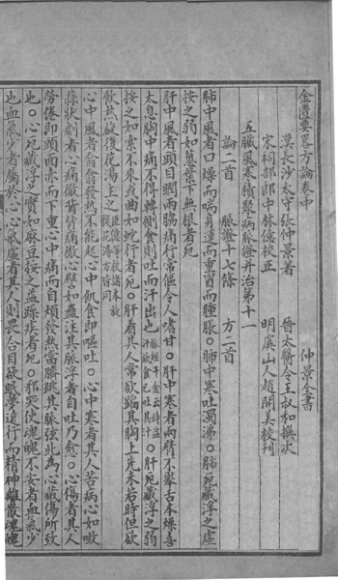 金匱要畧方論卷中
仲景全書
漢長沙太守張仲景著
晉太醫令王叔和撰次
宋祠部郎中林億校正
明虞山人趙開美校刋
五臟風寒積聚病脈證并治第十一
論二首
脉證十七條
方二首
肺中風者口燥而喘身運而重冒而腫脹○肺中寒吐濁涕○肺死藏浮之虛
按之弱如葱葉下無根者死
肝中風者頭目瞤兩脇痛行常傴令人嗜甘○肝中寒者兩臂不舉舌本燥喜
太息胸中痛不得轉側食則吐而汗出也
○肝死藏浮之弱
按之如索不來或曲如蛇行者死○肝着其人常欲蹈其胸上先未苦時但欲
飲熱旋復花湯主之
心中風者翕翕發熱不能起心中飢食即嘔吐○心中寒者其人苦病心如噉
蒜狀劇者心痛徹背背痛徹心譬如蠱注其脉浮者自吐乃愈○心傷者其人
勞倦即頭面赤而下重心中痛而自煩發熱當臍跳其脉弦此為心藏傷所致
也○心死藏浮之實如麻豆按之益躁疾者死○邪哭使魂魄不安者血氣少
也血氣少者屬於心心氣虛者其人則畏合目欲眠夢遠行而精神離散魂魄